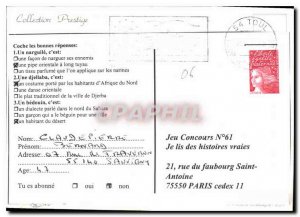 Collection Prestige
54 TOUL
Coche les bonnes réponses:
1.Un narguilé, c'est:
une façon de narguer ses ennemis
une pipe orientale à long tuyau
un tissu parfumé que l'on applique sur les narines
2.Une djellaba, c'est:
un costume porté par les habitants d'Afrique du Nord
une danse orientale
le plat traditionnel de la ville de Djerba
3.Un bédouin, c'est:
un dialecte parlé dans le nord du Sahara
un garçon qui a le béguin pour une fille
un habitant du désert
06
Nom: CLAUDEPIERRE
Prénom: BERNARD
Adresse:
Age: 47
Tu es abonné oui non
Jeu Concours N°61
Je lis des histoires vraies
21, rue du faubourg Saint-
Antoine
75550 PARIS cedex 11